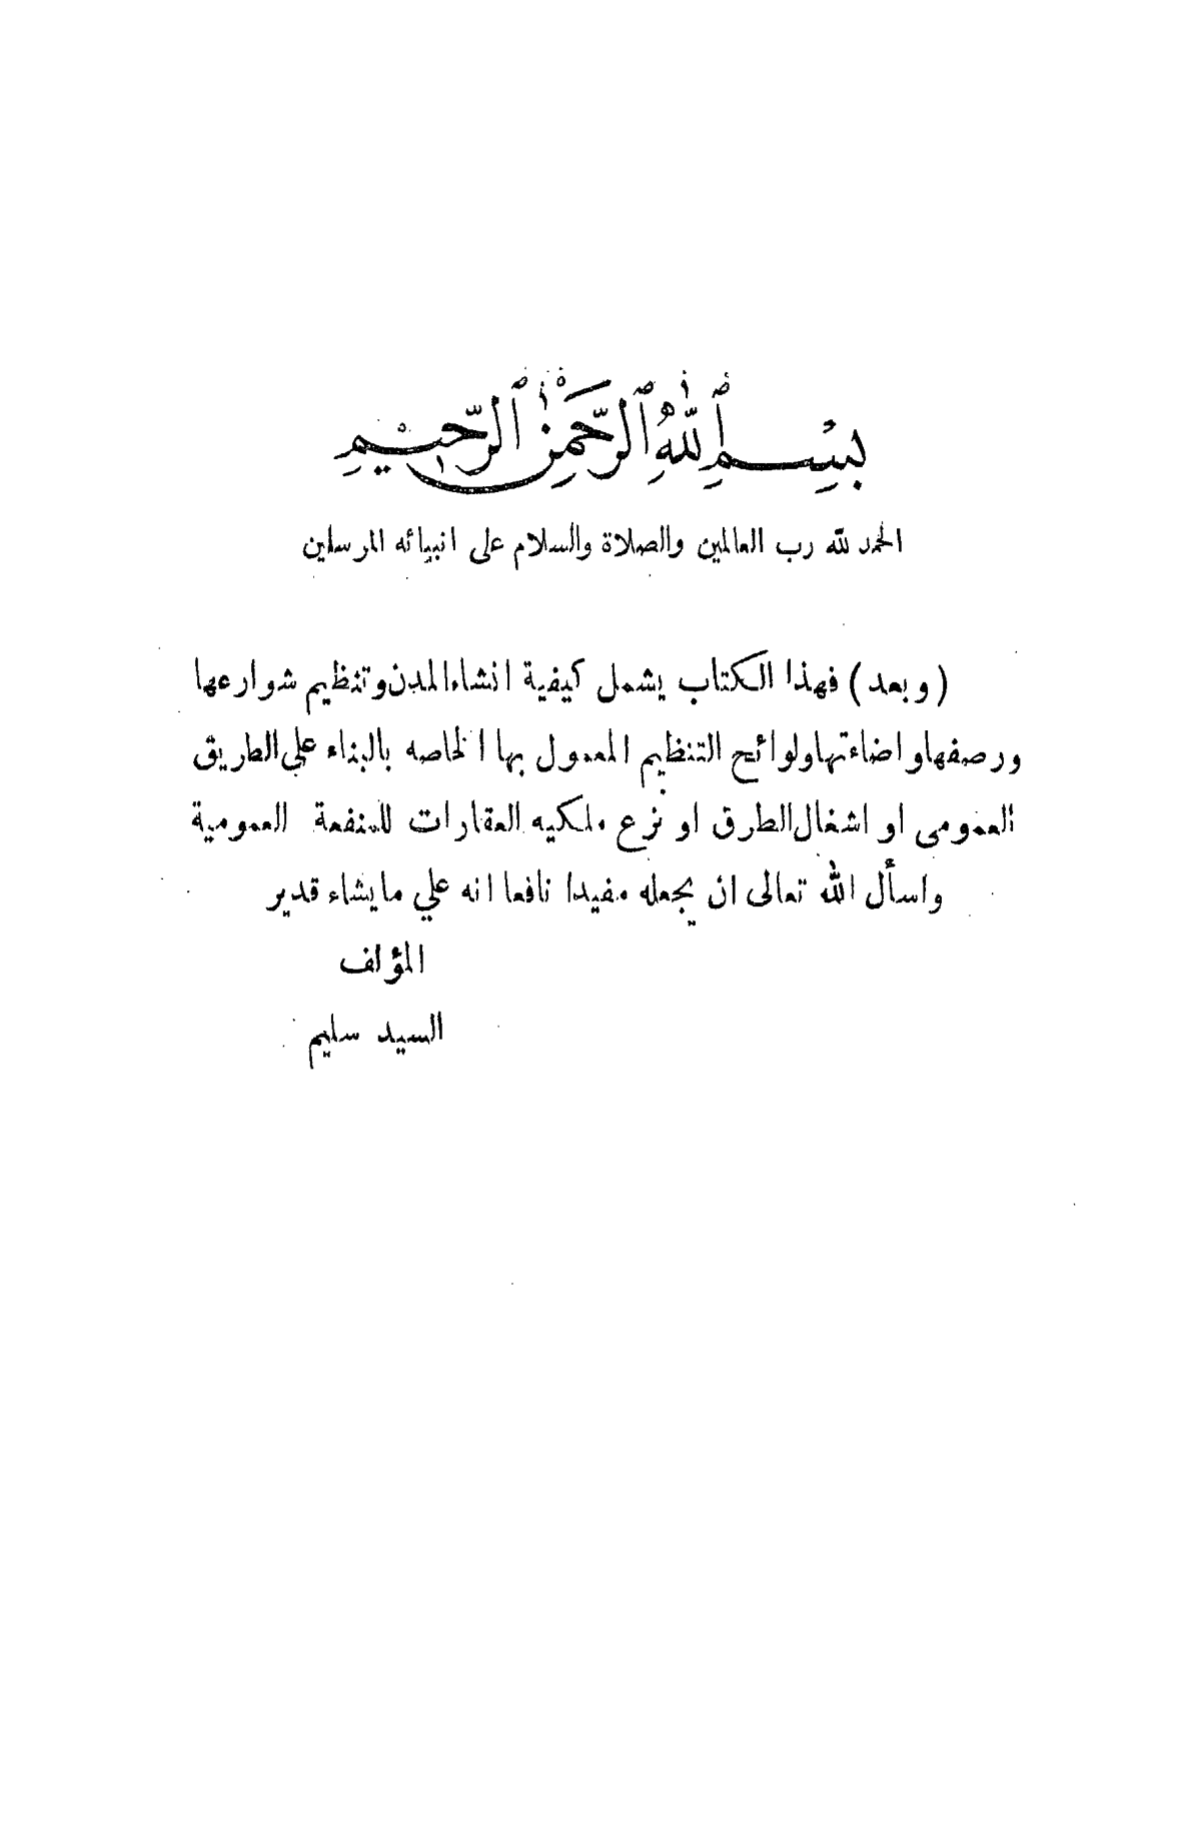 بِسْمِ ٱللَّهِ ٱلرَّحْمَٰنِ ٱلرَّحِيمِ
الحمد لله رب العالمين والصلاة والسلام على انبيائه المرسلين
(وبعد) فهذا الكتاب يشمل كيفية انشاءالمدن وتنظيم شوارعها
ورصفها واضاءتها ولوائح التنظيم المعمول بها الخاصه بالبناء علي الطريق
العمومى او اشغال الطرق او نزع ملكيه العقارات للمنفعة العمومية
واسأل الله تعالى ان يجعله مفيدا نافعا انه علي مايشاء قدير
المؤلف
السيد سليم